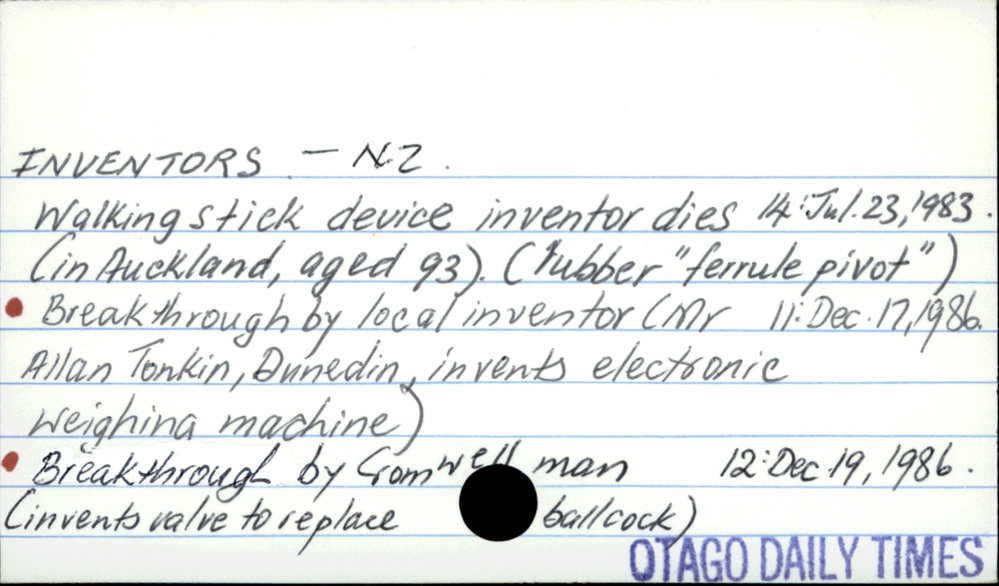 INVENTORS - NZ.
Walking stick device inventor dies 14:Jul.23,1983.
(in Auckland, aged 93). (rubber "ferrule pivot")
Breakthrough by local inventor (Mr 11:Dec.17,1986.
Allan Tonkin, Dunedin, invents electronic
weighing machine)
Breakthrough by Cromwell man 12:Dec.19,1986.
(invents valve to replace ballcock)
OTAGO DAILY TIMES